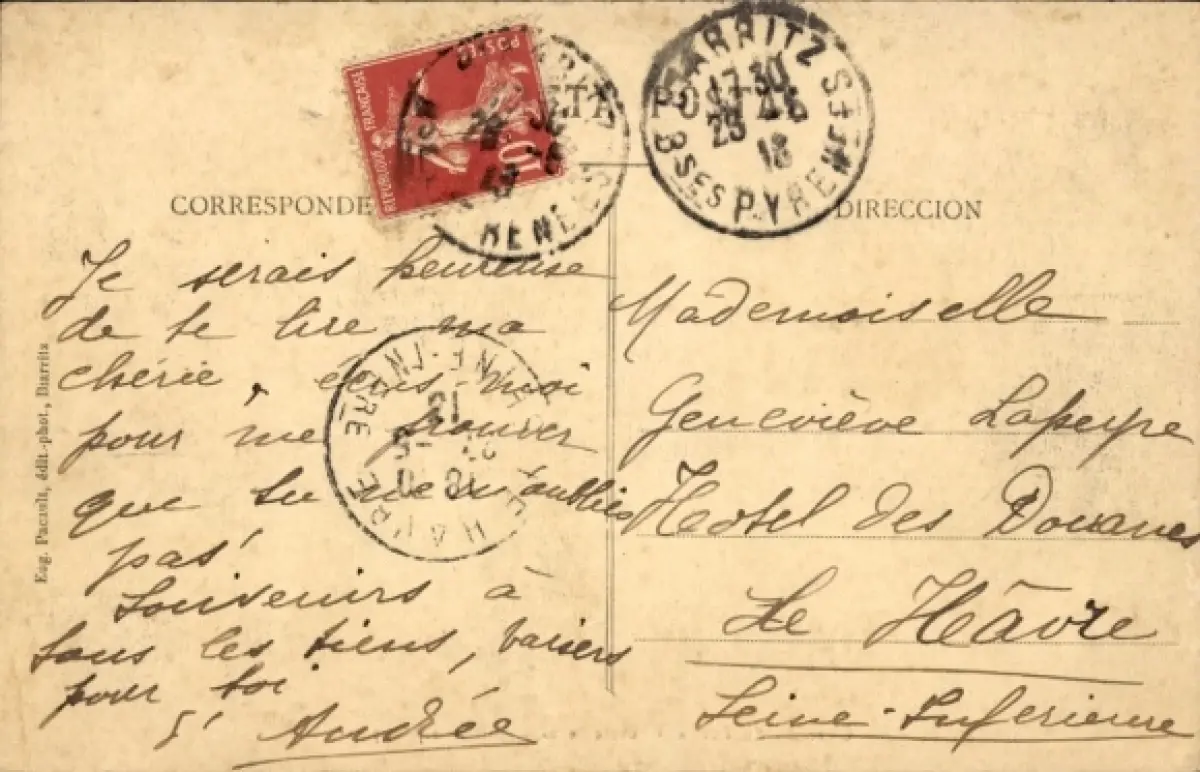 POSTES
REPUBLIQUE FRANÇAISE
10
BIARRITZ
17 30
BSES PYRENEES
POSTAL
CORRESPONDE
DIRECCION
Je serais heureuse
de te lire ma
chérie, écris-moi
pour me prouver
que tu ne m'oublies
pas.
Souvenirs à
tous les tiens, baisers
pour toi
Andrée
LE HAVRE
SEINE-INFRE
Mademoiselle
Geneviève Lapeyre
Hotel des Douanes
Le Hâvre
Seine-Inferieure
Eug. Pacault, édit.-phot., Biarritz